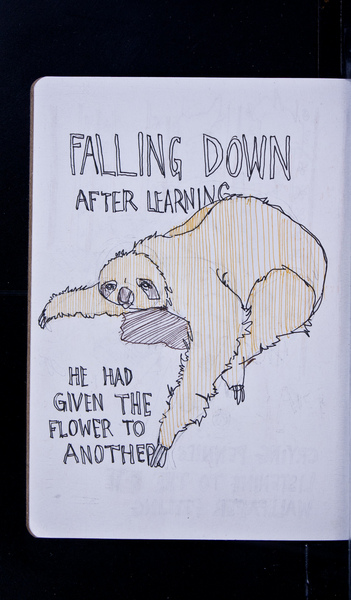 FALLING DOWN
AFTER LEARNING
HE HAD
GIVEN THE
FLOWER TO
ANOTHER